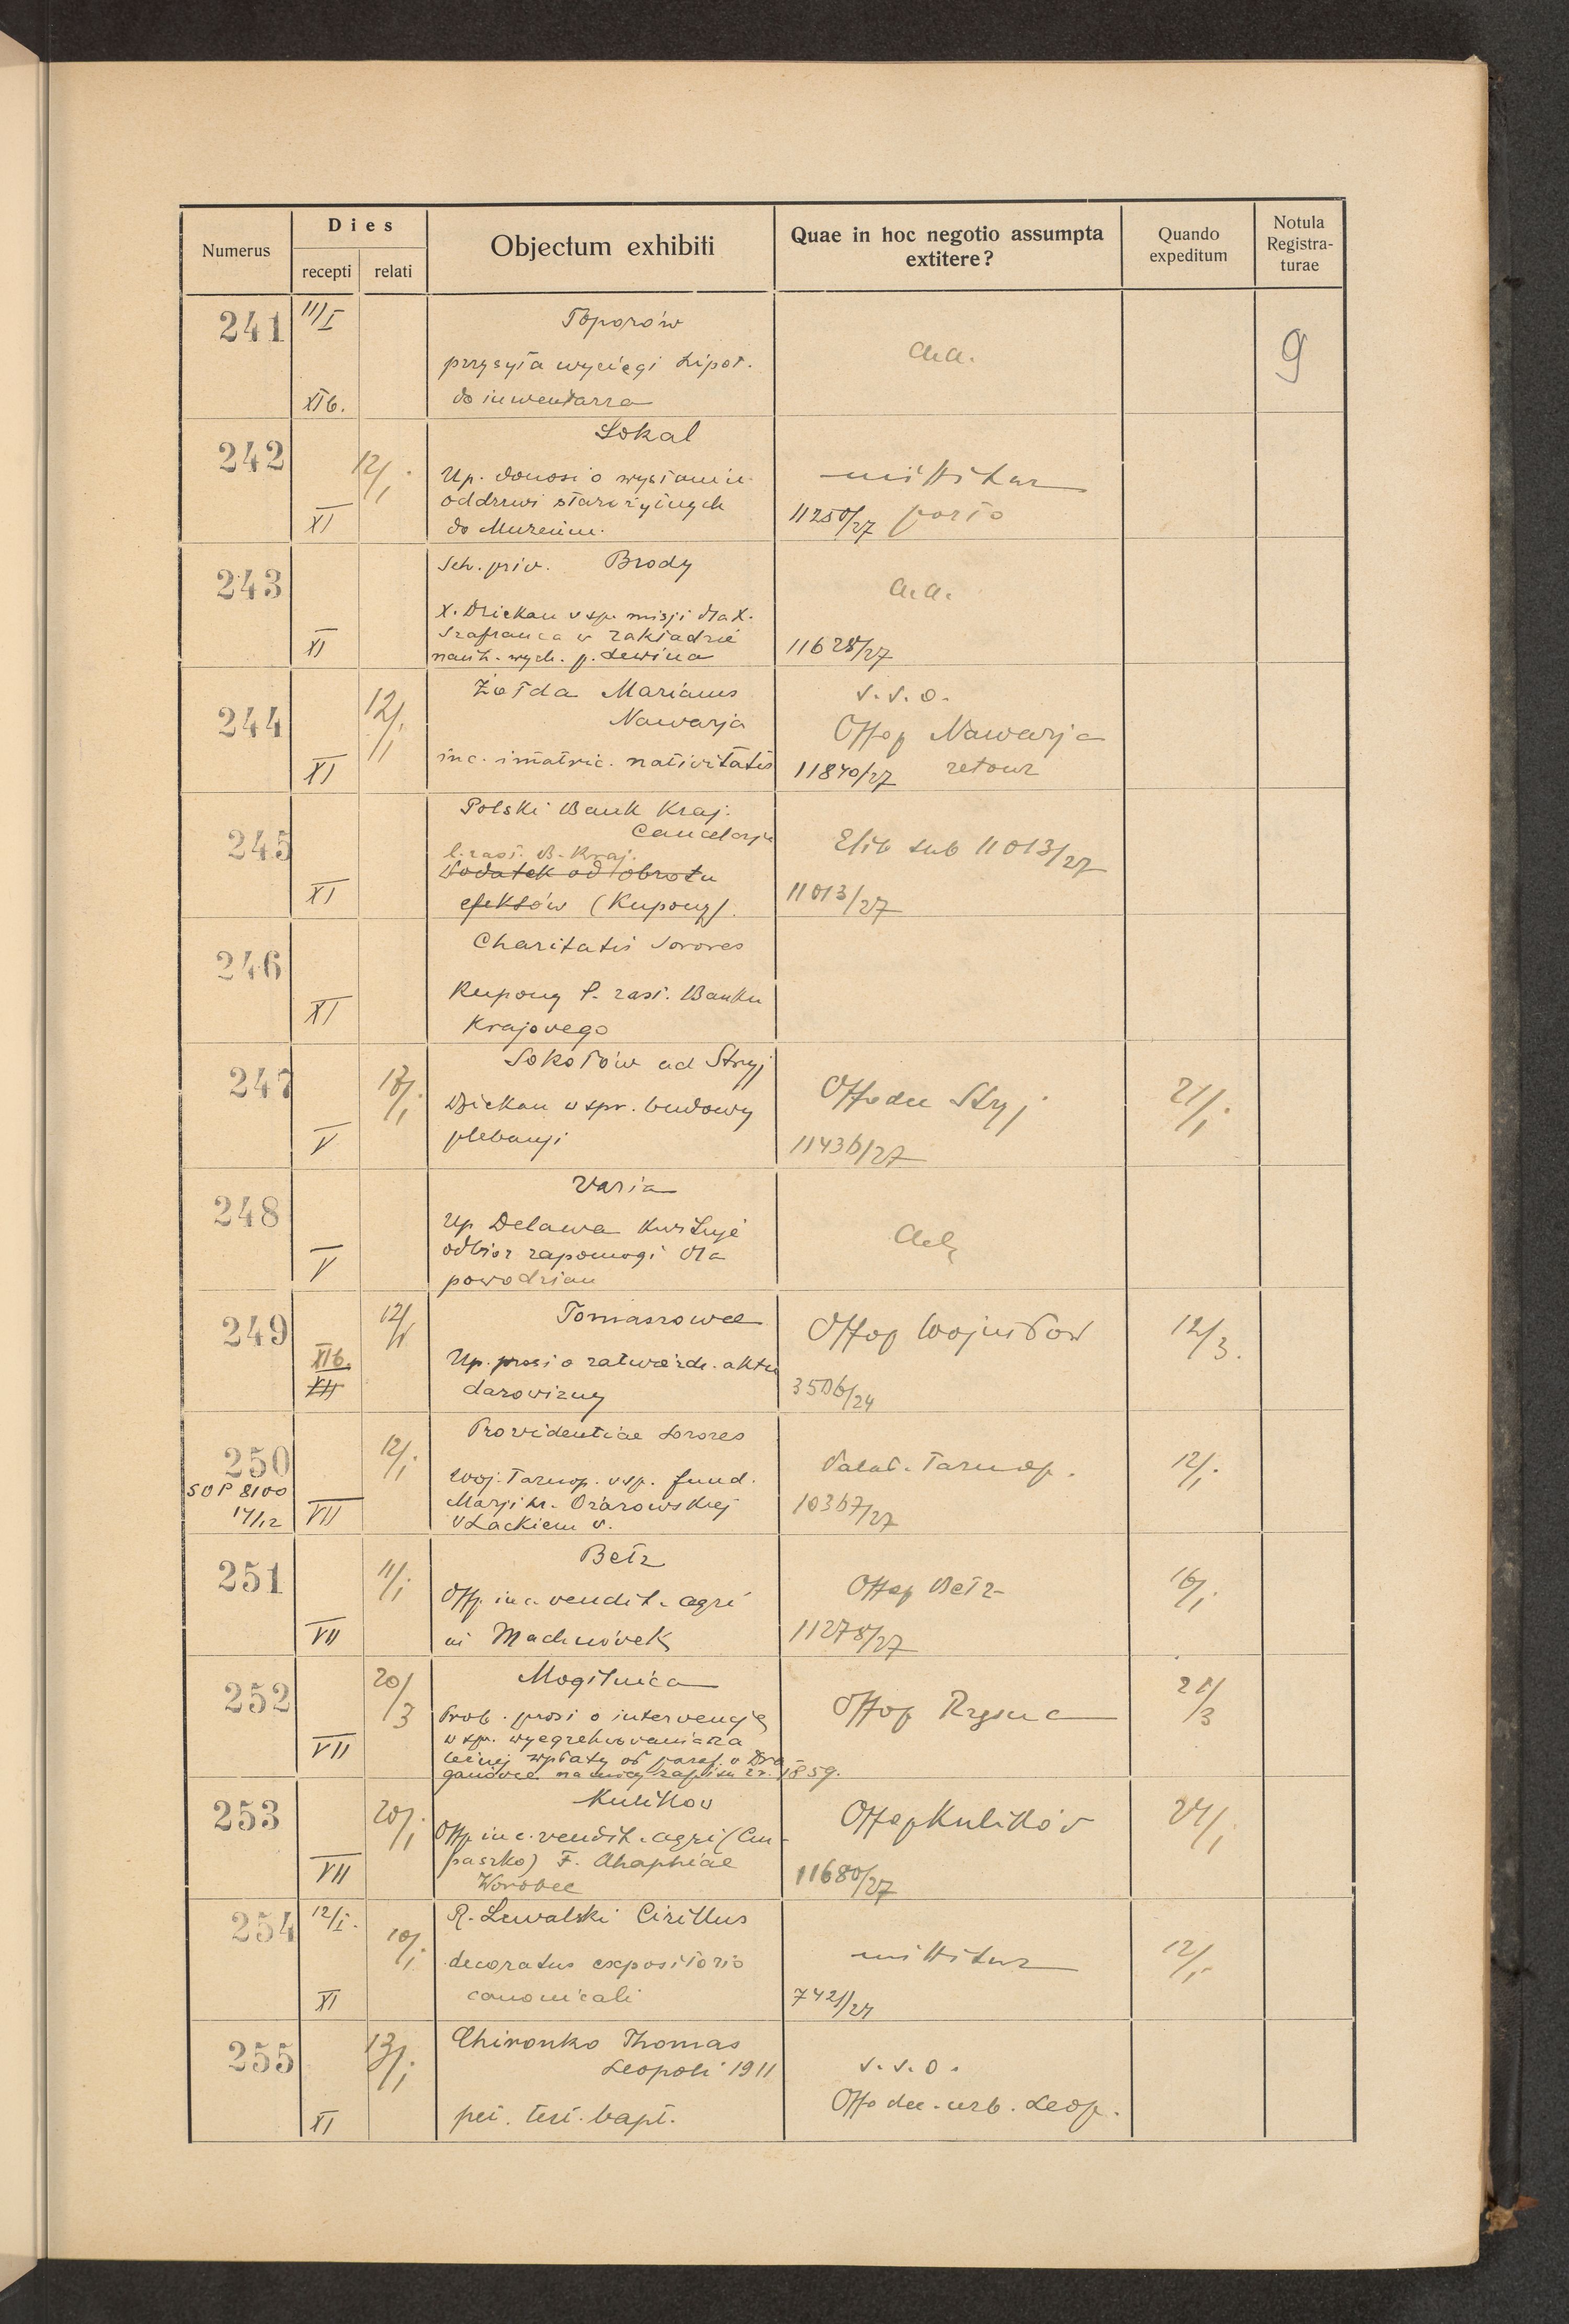 Numerus
Dies
recepti
relati
Objectum exhibiti
Quae in hoc negotio assumpta
extitere?
Quando
expeditum
Notula
Registra-
turae
9
241
11/I
XIb.
Toporów
przysyła wyciągi hipot.
do inwentarza
a.a.
242
XI
12/1.
Sokal
Up. donosi o wysłaniu
oddrzwi starożytnych
do Muzeum.
mittitur
11250/27 porto
243
XI
Sch. priv. Brody
X. Dziekan v sp. misji dla X.
Szafrańca w zakładzie
nauk. wych. p. Lewina
a.a.
11628/27
244
XI
12/1
Żołda Marianus
Nawarja
inc. imatric. nativitatis
v.s.o.
Offop Nawarja
11840/27 retour
245
XI
Polski Bank Kraj.
Cancelarja
l. zast. B. Kraj.
Podatek od obrotu
efektów (Kupony).
Elib sub 11013/27
11013/27
246
XI
Charitatis Sorores
Kupony l. zast. Banku
Krajowego
247
V
13/1
Sokołów ad Stryj
Dziekan w spr. budowy
plebanji
Offodec Stryj
11436/27
21/1
248
V
Varia
Up Delawa kwituje
odbiór zapomogi dla
powodzian
249
XIb.
XII
12/1
Tomaszowce
Up. prosi o zatwierdz. aktu
darowizny
Offop Wojniłów
3506/24
12/3.
250
SOP 8100
17/12
VII
12/1
Providentiae Sorores
Woj. Tarnop. v sp. fund.
Marji hr. Ożarowskiej
v Lackiem v.
Palat. Tarnop.
10367/27
12/1
251
VII
11/1
Bełz
Offp. inc. vendit. agri
in Machnówek
Offop Bełz
11278/27
16/1
252
VII
20/3
Mogilnica
Prob. prosi o interwencję
w sp. wyegzekwowania
wpłaty od paraf. v Dra
ganówce na mocy zapisu z r. 1859.
Offop
21/3
253
VII
20/1
Kulików
Offp. inc. vendit. agri
F. Ahaphiae
Worobec
Offop Kulików
11680/27
24/1
254
12/I.
XI
10/1
R. Lewalski Cirillus
decoratus expositorio
canonicali
mittitur
7421/24
12/1
255
XI
13/1
Chironko Thomas
Leopoli 1911
pet. test. bapt.
v.s.o.
Offo dec. urb. Leop.